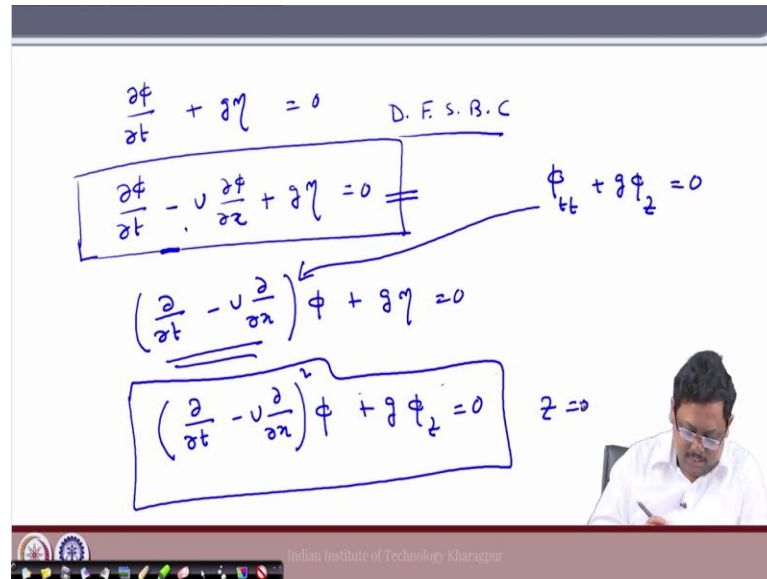 ∂φ/∂t + gη = 0 D. F. S. B. C
∂φ/∂t - U ∂φ/∂x + gη = 0
φ_tt + gφ_z = 0
(∂/∂t - U ∂/∂x) φ + gη = 0
(∂/∂t - U ∂/∂x)² φ + g φ_z = 0 z = 0
Indian Institute of Technology Kharagpur